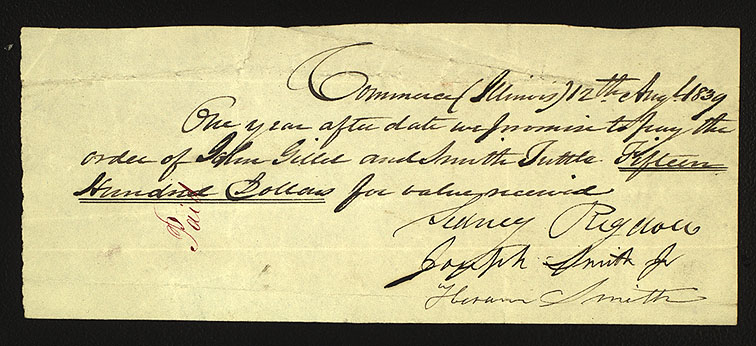 Commerce (Illinois) 12th Augt. 1839
One year after date we promise to pay the
order of John Gillet and Smith Tuttle Fifteen
Hundred Dollars for value received
Paid
Sidney Rigdon
Joseph Smith Jr
Hiram Smith